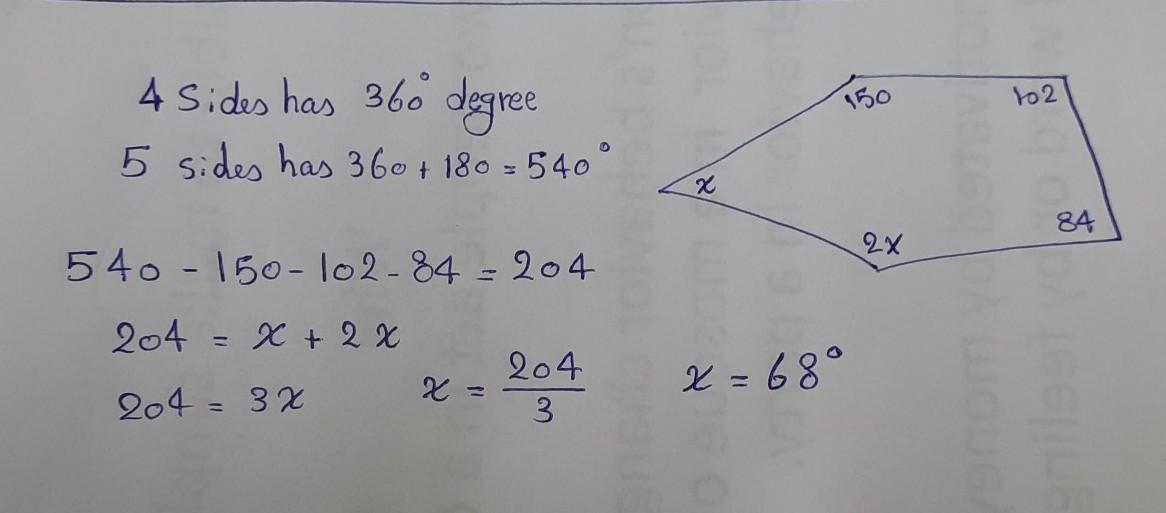 4 Sides has 360° degree
5 sides has 360 + 180 = 540°
150
102
x
84
2x
540 - 150 - 102 - 84 = 204
204 = x + 2x
204 = 3x
x = 204/3
x = 68°